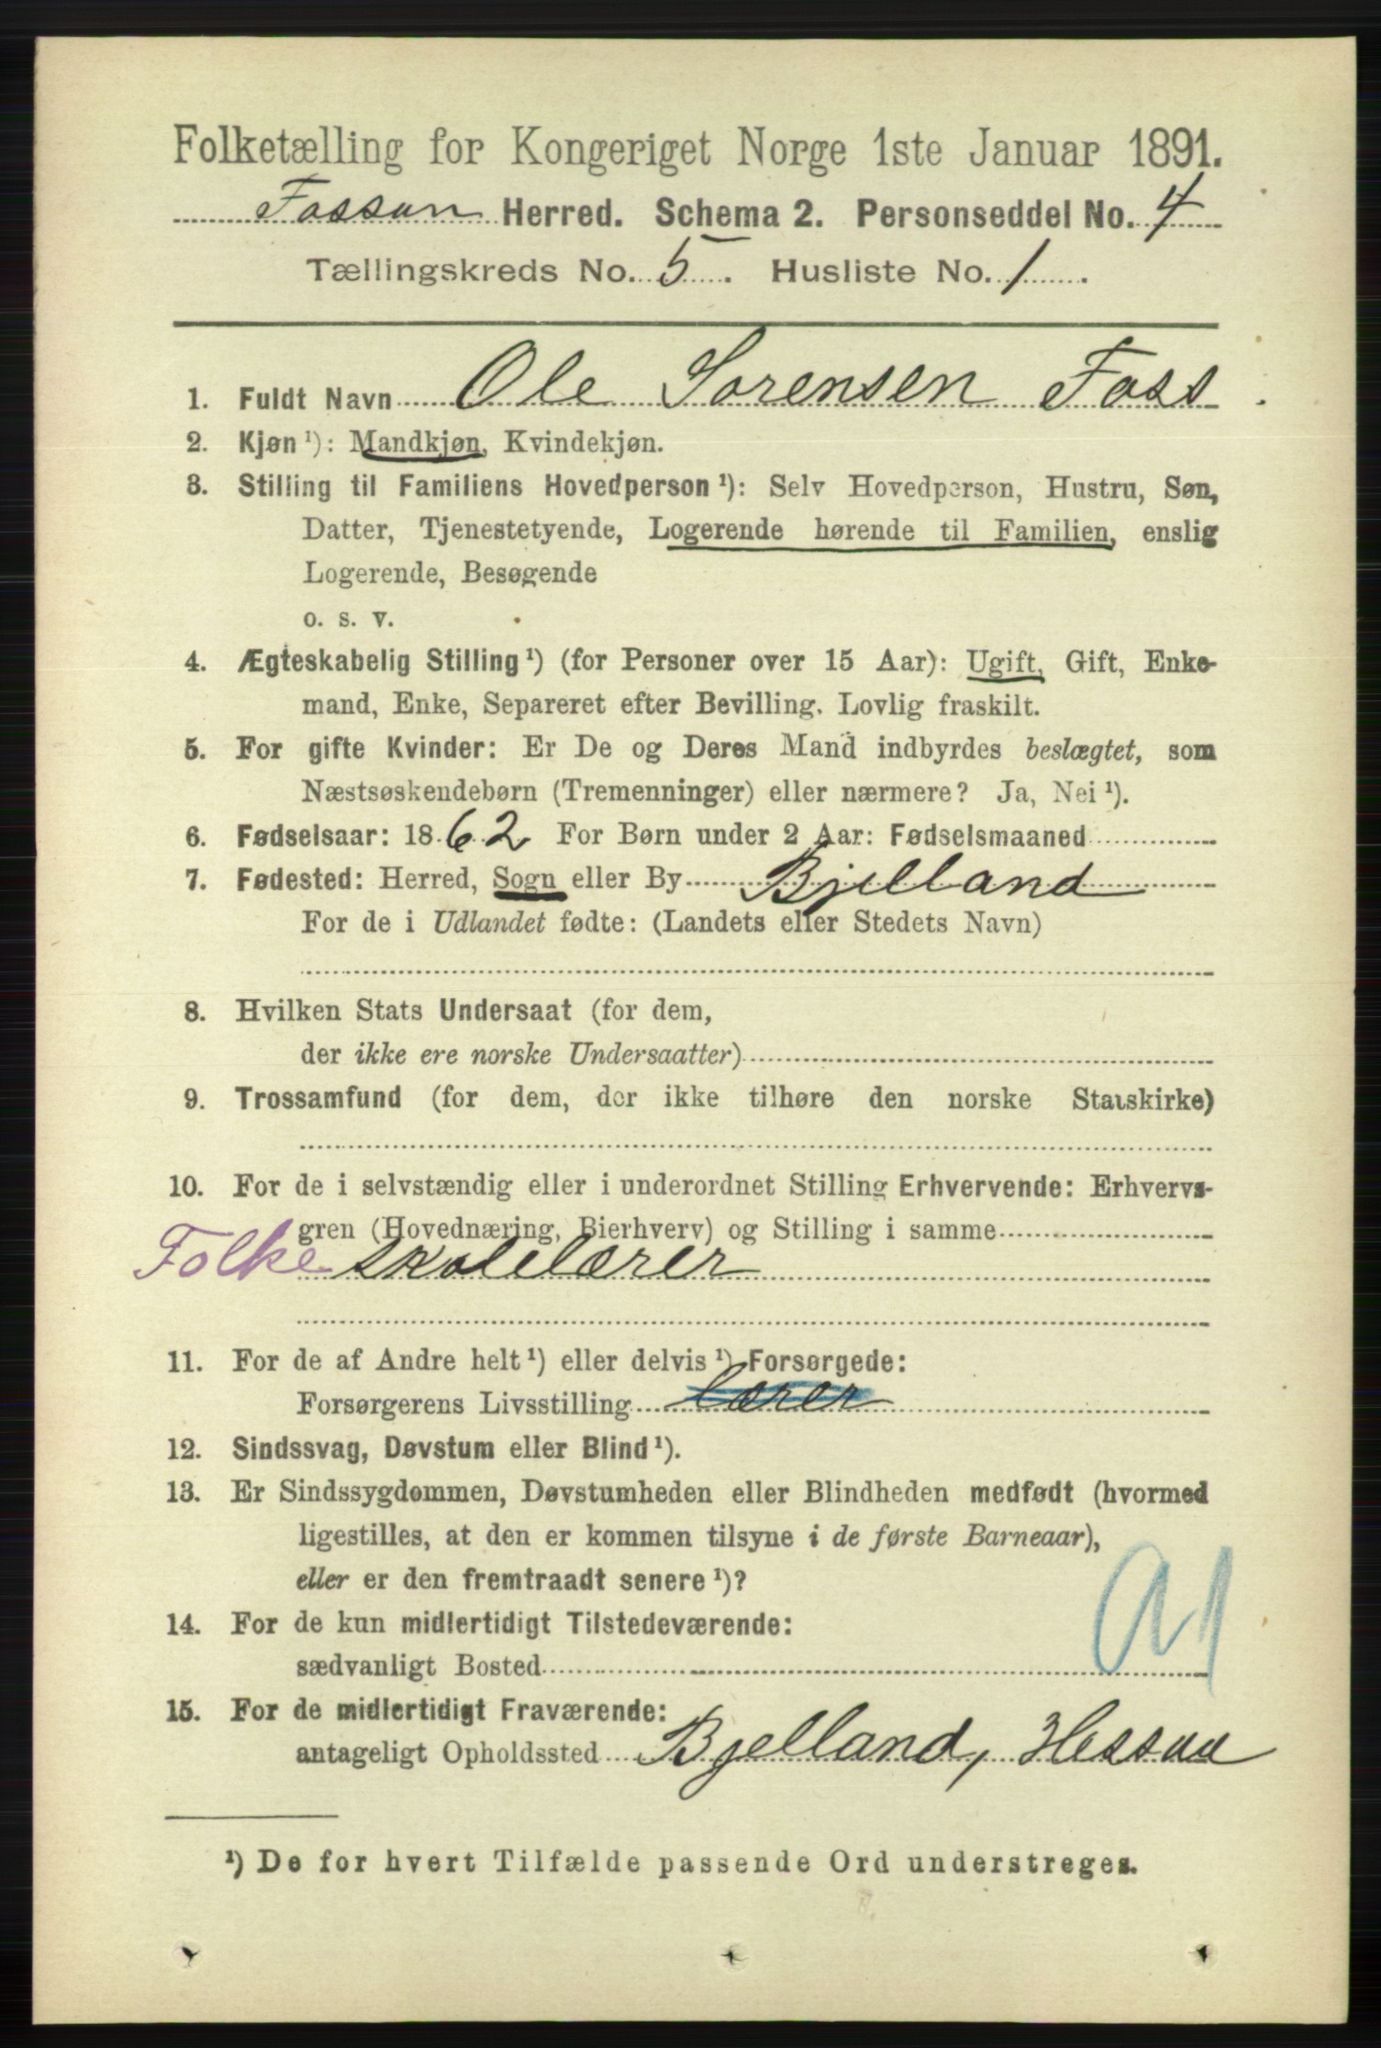 Folketælling for Kongeriget Norge 1ste Januar 1891.
Fossan Herred. Schema 2. Personseddel No. 4
Tællingskreds No. 5. Husliste No. 1.
1. Fuldt Navn Ole Sorensen Foss.
2. Kjøn ¹): Mandkjøn, Kvindekjøn.
3. Stilling til Familiens Hovedperson ¹): Selv Hovedperson, Hustru, Søn,
Datter, Tjenestetyende, Logerende hørende til Familien, enslig
Logerende, Besøgende
o. s. v.
4. Ægteskabelig Stilling ¹) (for Personer over 15 Aar): Ugift, Gift, Enke-
mand, Enke, Separeret efter Bevilling. Lovlig fraskilt.
5. For gifte Kvinder: Er De og Deres Mand indbyrdes beslægtet, som
Næstsøskendebørn (Tremenninger) eller nærmere? Ja, Nei ¹).
6. Fødselsaar: 1862 For Børn under 2 Aar: Fødselsmaaned
7. Fødested: Herred, Sogn eller By Bjelland
For de i Udlandet fødte: (Landets eller Stedets Navn)
8. Hvilken Stats Undersaat (for dem,
der ikke ere norske Undersaatter)
9. Trossamfund (for dem, der ikke tilhøre den norske Statskirke)
10. For de i selvstændig eller i underordnet Stilling Erhvervende: Erhvervs-
gren (Hovednæring, Bierhverv) og Stilling i samme
Folkeskolelærer
11. For de af Andre helt ¹) eller delvis ¹) Forsørgede:
Forsørgerens Livsstilling lærer
12. Sindssvag, Døvstum eller Blind ¹).
13. Er Sindssygdommen, Døvstumheden eller Blindheden medfødt (hvormed
ligestilles, at den er kommen tilsyne i de første Barneaar),
eller er den fremtraadt senere ¹)?
14. For de kun midlertidigt Tilstedeværende:
sædvanligt Bosted
15. For de midlertidigt Fraværende:
antageligt Opholdssted Bjelland,
¹) De for hvert Tilfælde passende Ord understreges.